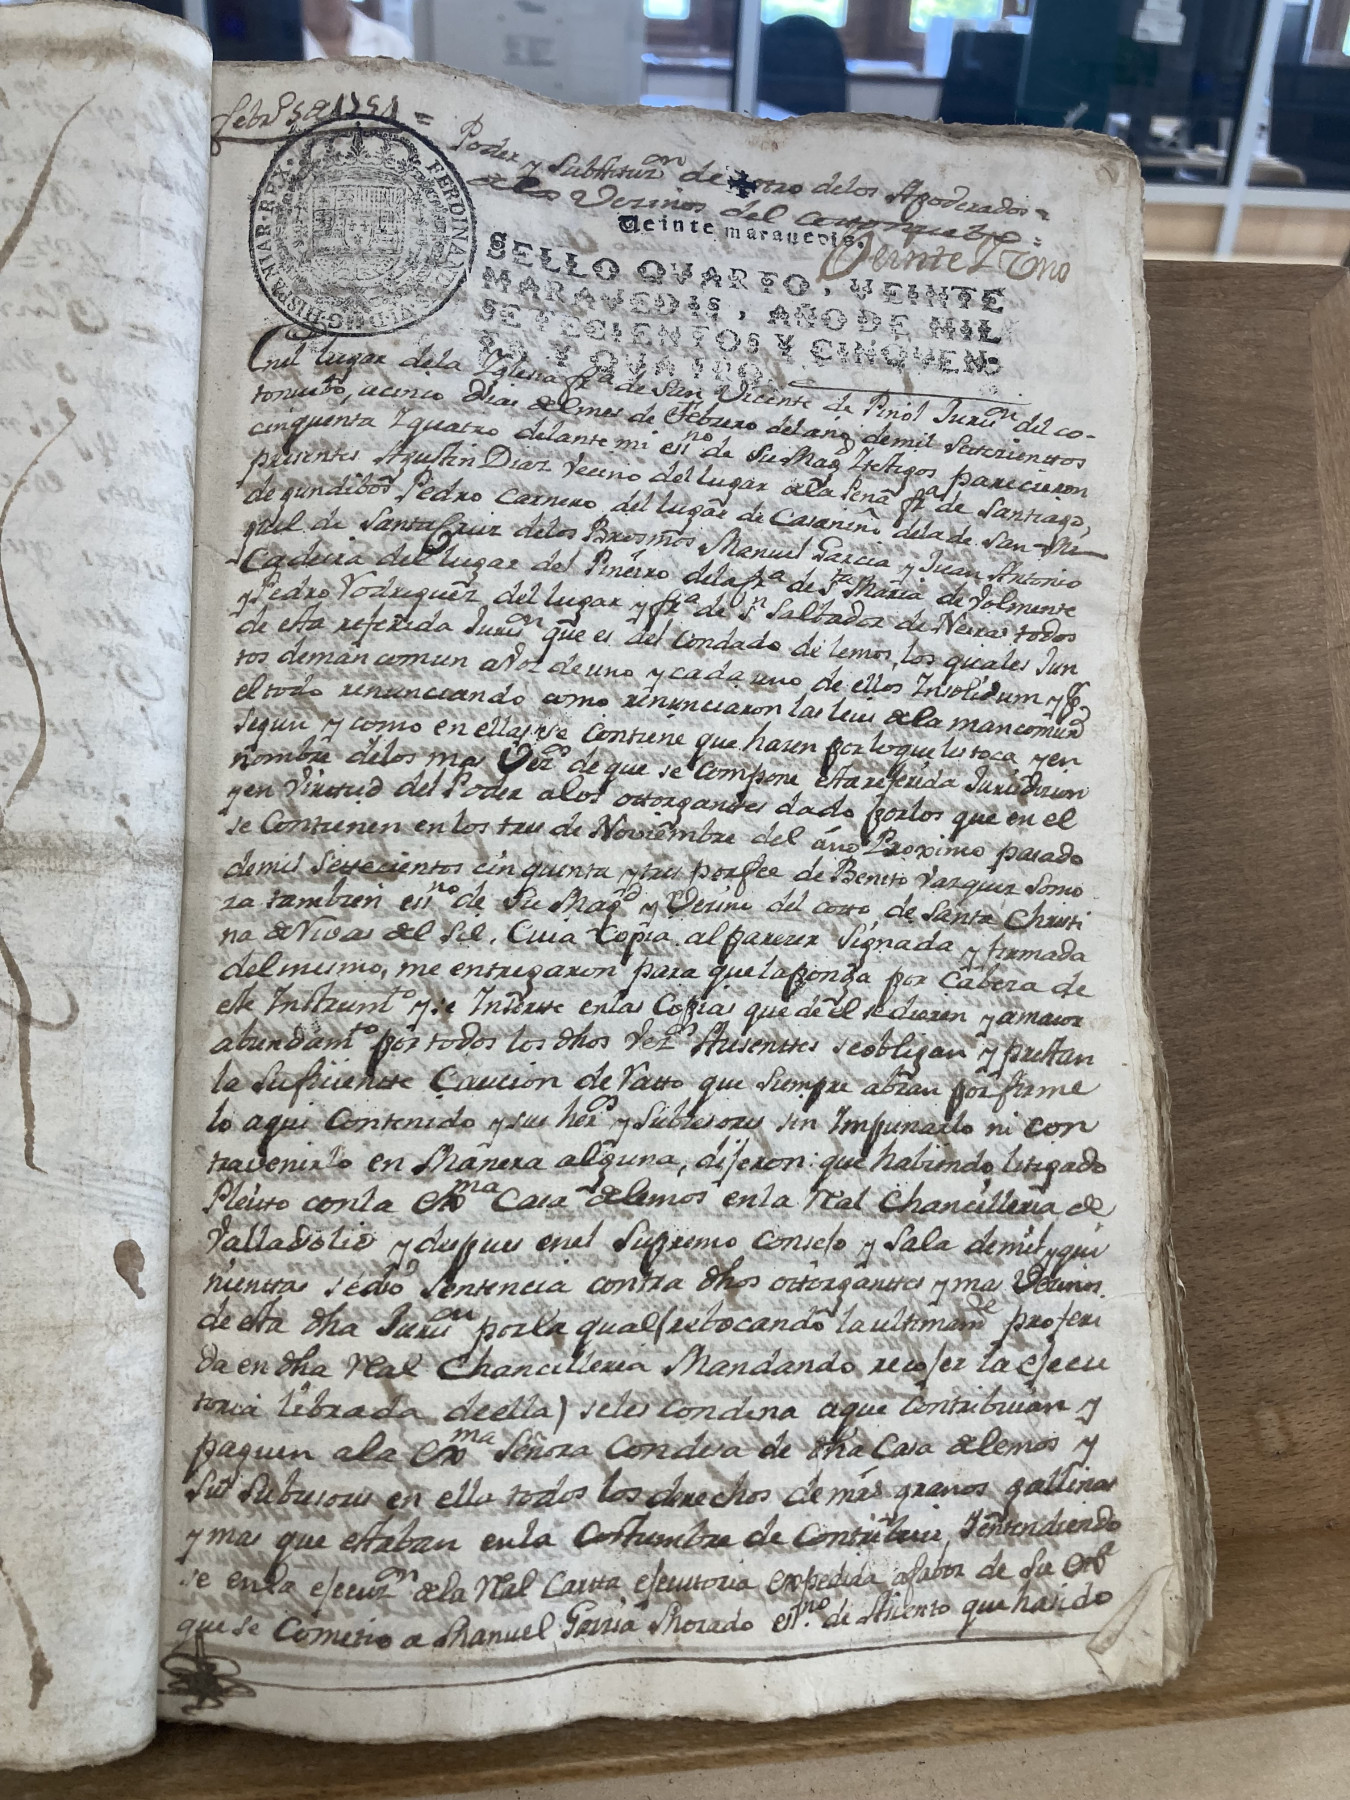 febr.º 5 de 1754 =
Poder y Substituz.on de otro delos Apoderados =
a los Vecinos del coto
Veinte maravedis.
Veinte y Uno
FERDINANDUS VI D G HISPANIAR REX
SELLO QVARTO, VEINTE
MARAVEDIS, AÑO DE MIL
SETECIENTOS Y CINQVEN-
TA Y QVATRO.
Enel lugar dela Iglesia fr.a de San Vicente de Piñol Juris.on del co-
to nuebo, acinco dias del mes de Febrero del año demil Setecientos
cinquenta Y quatro delante mi esn.no de Su Mag.d Ytestigos parecieron
presentes Agustin Diaz Vecino del lugar dela Pena fr.a de Santiago
de gundibos Pedro Carnero del lugar de Casanino dela de San Mi
guel de Santa Cruz delos Brosmos Manuel Garcia y Juan Antonio
Cadeira del lugar del Piñeiro dela fr.a de S.ta Maria de Volmente
y Pedro Rodriguez del lugar y fr.a de S.n Salbador de Neiras todos
de esta referida Juris.on que es del Condado de lemos, los quales Jun
tos demancomun avoz de uno y cada uno de ellos Insolidum y p.r
el todo renunciando como renunciaron las leies dela mancomun.d
segun y como en ellas se Contiene que hacen por loque les toca y en
nombre delos mas Vez.os de que se compone esta referida Jurisdicion
y en Virttud del Poder alos ottorganttes dado porlos que en el
se Contienen en los tres de Noviembre del año Proximo pasado
demil settecientos cinquenta y tres por fee de Benito Vazquez Somo
za tambien esn.no de Su Mag.d y Vecino del cotto de Santa Christi
na de Rivas del Sil, Cuia Copia al parecer signada y firmada
del mismo, me entregaron para que la ponga por Cabeza de
este Instrum.to y se Inserte en las Copias que de el se dieren y amaior
abundam.to por todos los dhos Vez.os Ausenttes se obligan y prestan
la suficientte Caucion de Ratto que siempre abran por firme
lo aqui Contenido y sus her.os y Subcesores sin Impunarlo ni con
travenirlo en Manera alguna, dijeron: que habiendo litigado
Pleito con la Ex.ma Casa de lemos en la Real Chancilleria de
Valladolid y despues en el Supremo Consejo y Sala de mil y qui
nientas se dio Sentencia contra dhos ottorganttes y mas Vecinos
de esta dha Juris.on por la qual (rebocando la ultimam.te proferi
da en dha Real Chancilleria Mandando recojer la ejecu
toria librada de ella) seles condena a que Contribuian y
paguen a la Ex.ma Señora Condesa de dha Casa de lemos y
Sus Subcesores en ella todos los derechos de mrs granos gallinas
y mas que estaban en la Costumbre de Contribuir, Yentendiendo
se en la ejecuz.on de la Real Cartta ejecutoria expedida a fabor de Su Ex.a
que se Cometio a Manuel Garcia Morado esn.no de Asiento que ha sido